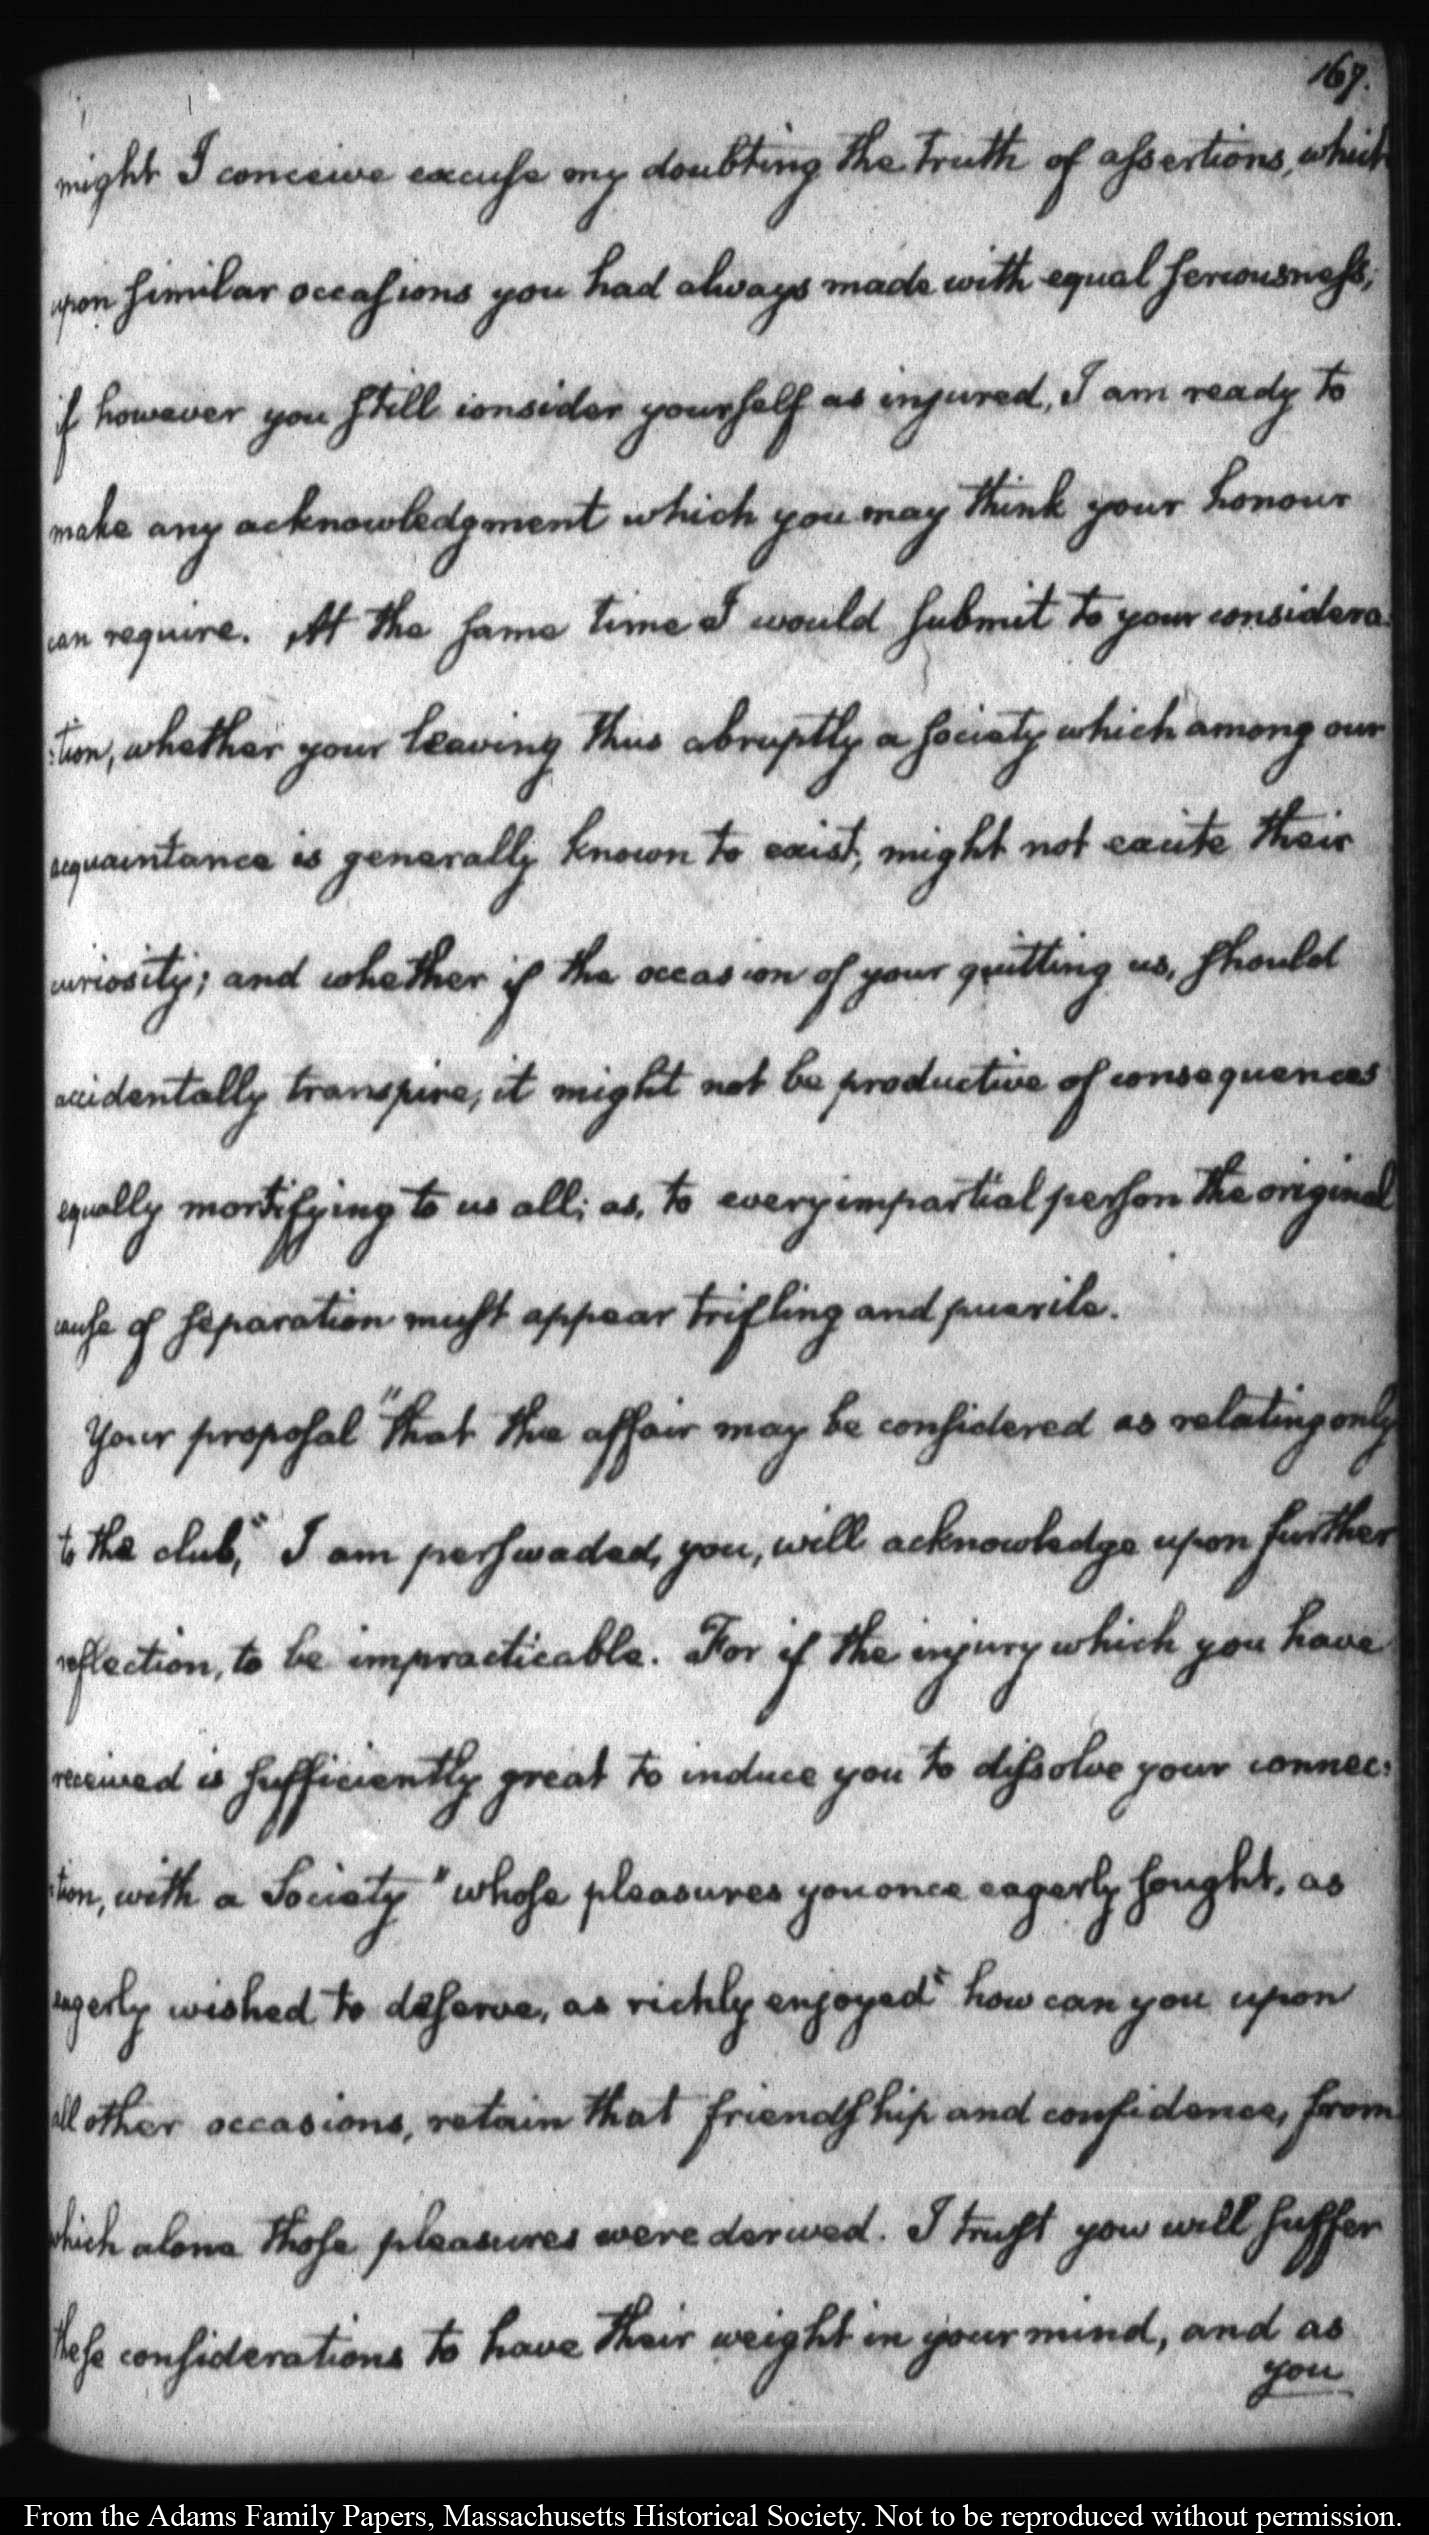 167.
might I conceive excuse my doubting the truth of assertions, which
upon similar occasions you had always made with equal seriousness;
if however you still consider yourself as injured, I am ready to
make any acknowledgment which you may think your honour
can require. At the same time I would submit to your considera:
:tion, whether your leaving thus abruptly a society which among our
acquaintance is generally known to exist, might not excite their
curiosity; and whether if the occasion of your quitting us, should
accidentally transpire, it might not be productive of consequences
equally mortifying to us all; as, to every impartial person the original
cause of separation must appear trifling and puerile.
Your proposal "that the affair may be considered as relating only
to the club," I am perswaded, you, will acknowledge upon further
reflection, to be impracticable. For if the injury which you have
received is sufficiently great to induce you to dissolve your connec:
:tion, with a Society "whose pleasures you once eagerly sought, as
eagerly wished to deserve, as richly enjoyed" how can you upon
all other occasions, retain that friendship and confidence, from
which alone those pleasures were derived. I trust you will suffer
these considerations to have their weight in your mind, and as
you
From the Adams Family Papers, Massachusetts Historical Society. Not to be reproduced without permission.